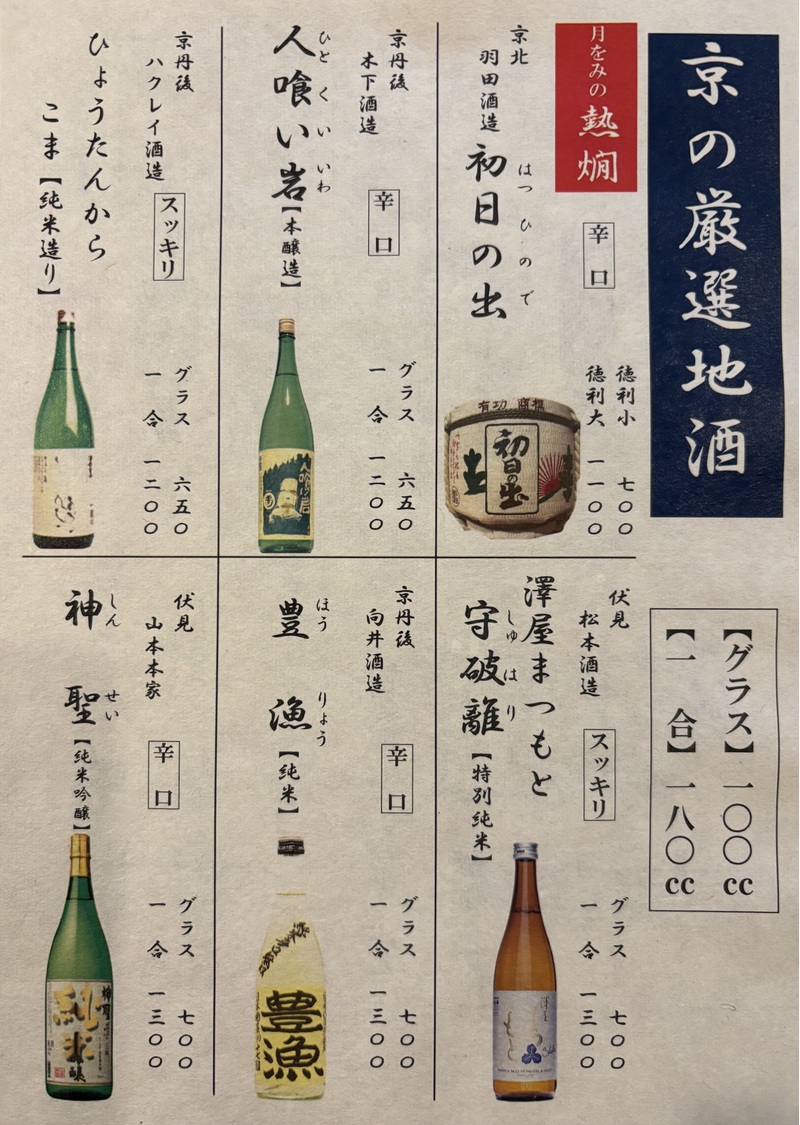 京の厳選地酒
【グラス】一〇〇cc
【一合】一八〇cc
月をみの熱燗
京北
羽田酒造
初日の出
はつひので
辛口
徳利小 七〇〇
徳利大 一一〇〇
有功 商標
初日の出
京丹後
木下酒造
人喰い岩【本醸造】
ひとくいいわ
辛口
グラス 六五〇
一合 一二〇〇
人喰い岩
京丹後
ハクレイ酒造
ひょうたんから
こま【純米造り】
スッキリ
グラス 六五〇
一合 一二〇〇
伏見
松本酒造
澤屋まつもと
守破離【特別純米】
しゅはり
スッキリ
グラス 七〇〇
一合 一三〇〇
京丹後
向井酒造
豊漁【純米】
ほうりょう
辛口
グラス 七〇〇
一合 一三〇〇
豊漁
伏見
山本本家
神聖【純米吟醸】
しんせい
辛口
グラス 七〇〇
一合 一三〇〇
神聖
純米